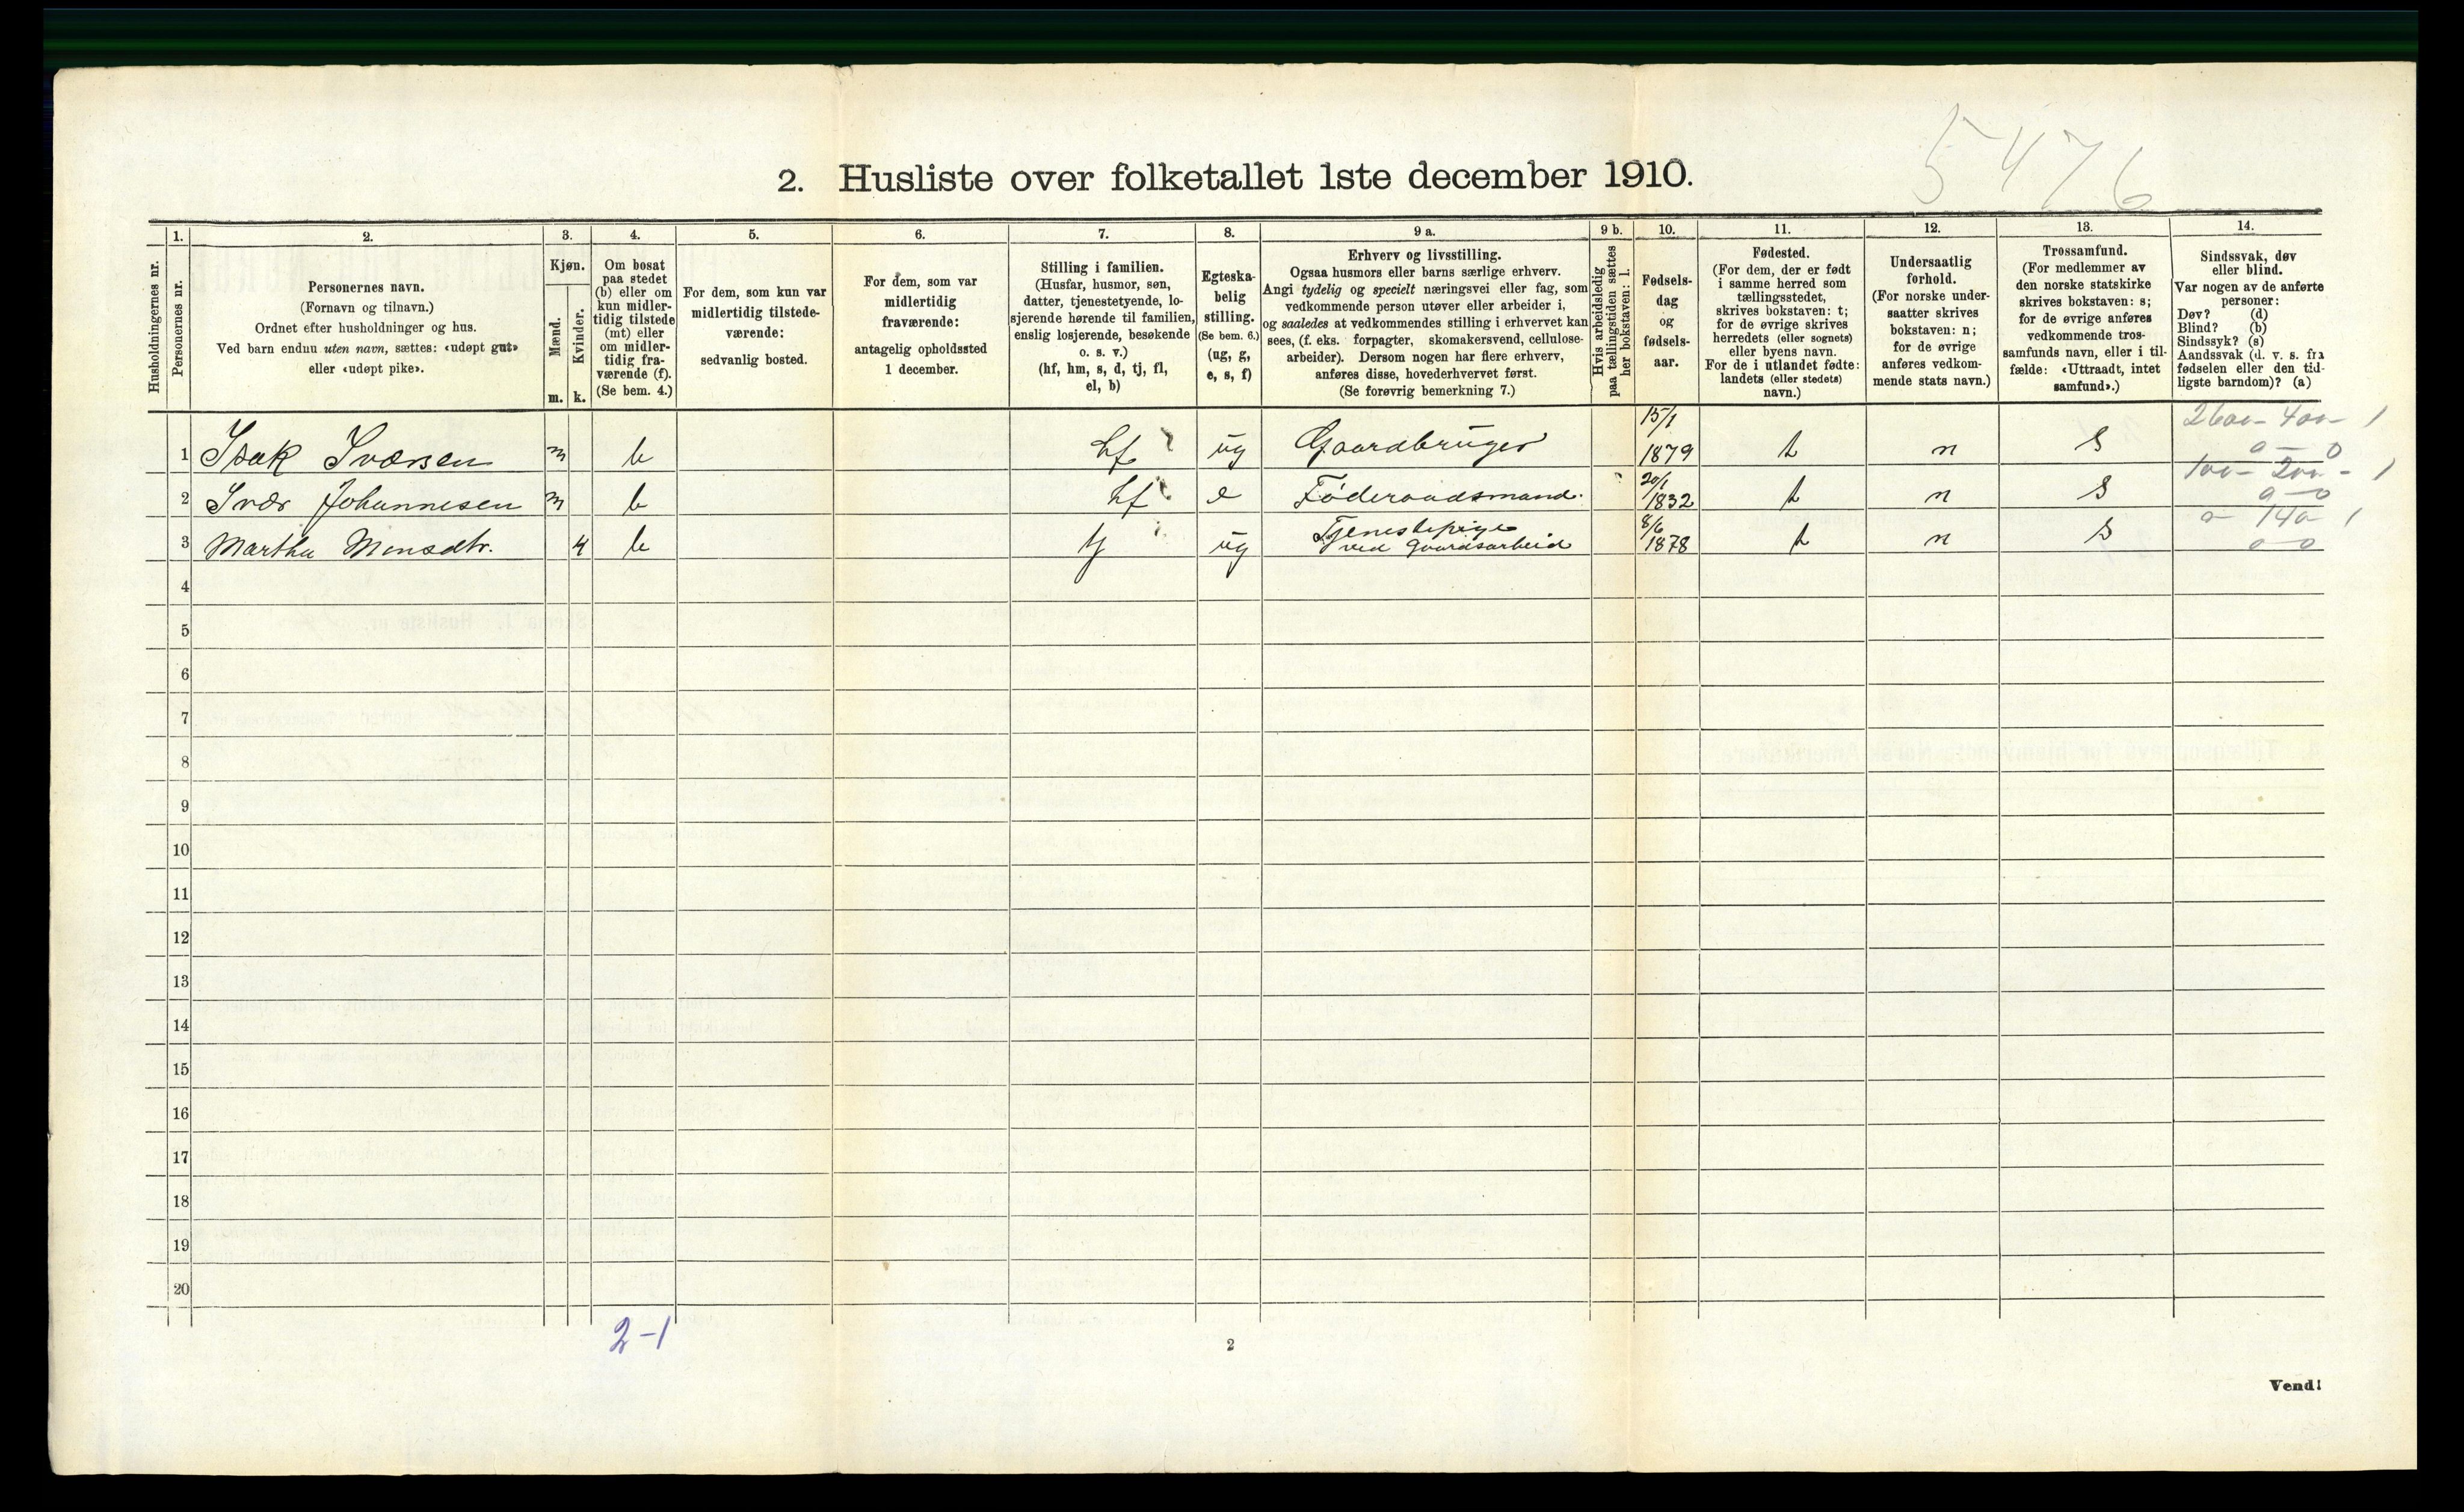 5476
2. Husliste over folketallet 1ste december 1910.
Husholdningernes nr.
1.
Personernes nr.
2.
Personernes navn.
(Fornavn og tilnavn.)
Ordnet efter husholdninger og hus.
Ved barn endnu uten navn, sættes: «udøpt gut»
eller «udøpt pike».
3.
Kjøn.
Mænd.
Kvinder.
m. k.
4.
Om bosat
paa stedet
(b) eller om
kun midler-
tidig tilstede
(mt) eller
om midler-
tidig fra-
værende (f).
(Se bem. 4.)
5.
For dem, som kun var
midlertidig tilstede-
værende:
sedvanlig bosted.
6.
For dem, som var
midlertidig
fraværende:
antagelig opholdssted
1 december.
7.
Stilling i familien.
(Husfar, husmor, søn,
datter, tjenestetyende, lo-
sjerende hørende til familien,
enslig losjerende, besøkende
o. s. v.)
(hf, hm, s, d, tj, fl,
el, b)
8.
Egteska-
belig
stilling.
(Se bem. 6.)
(ug, g,
e, s, f)
9 a.
Erhverv og livsstilling.
Ogsaa husmors eller barns særlige erhverv.
Angi tydelig og specielt næringsvei eller fag, som
vedkommende person utøver eller arbeider i,
og saaledes at vedkommendes stilling i erhvervet kan
sees, (f. eks. forpagter, skomakersvend, cellulose-
arbeider). Dersom nogen har flere erhverv,
anføres disse, hovederhvervet først.
(Se forøvrig bemerkning 7.)
9 b.
Hvis arbeidsledig
paa tællingstiden sættes
her bokstaven: l.
10.
Fødsels-
dag
og
fødsels-
aar.
11.
Fødested.
(For dem, der er født
i samme herred som
tællingsstedet,
skrives bokstaven: t;
for de øvrige skrives
herredets (eller sognets)
eller byens navn.
For de i utlandet fødte:
landets (eller stedets)
navn.)
12.
Undersaatlig
forhold.
(For norske under-
saatter skrives
bokstaven: n;
for de øvrige
anføres vedkom-
mende stats navn.)
13.
Trossamfund.
(For medlemmer av
den norske statskirke
skrives bokstaven: s;
for de øvrige anføres
vedkommende tros-
samfunds navn, eller i til-
fælde: «Uttraadt, intet
samfund».)
14.
Sindssvak, døv
eller blind.
Var nogen av de anførte
personer:
Døv? (d)
Blind? (b)
Sindssyk? (s)
Aandssvak (d. v. s. fra
fødselen eller den tid-
ligste barndom)? (a)
1 Isak Iversen m b hf ug Gaardbruger 15/1 1879 t n s 2600 - 400 - 1
0 - 0
2 Iver Johannesen m b hf e Føderaadsmand. 20/1 1832 t n s 100 - 200 - 1
0 - 0
3 Martha Monsdtr. k b tj ug Tjenestepige
ved gaardsarbeid 8/6 1878 t n s 0 - 140 - 1
0 - 0
4
5
6
7
8
9
10
11
12
13
14
15
16
17
18
19
20
2-1
2
Vend!